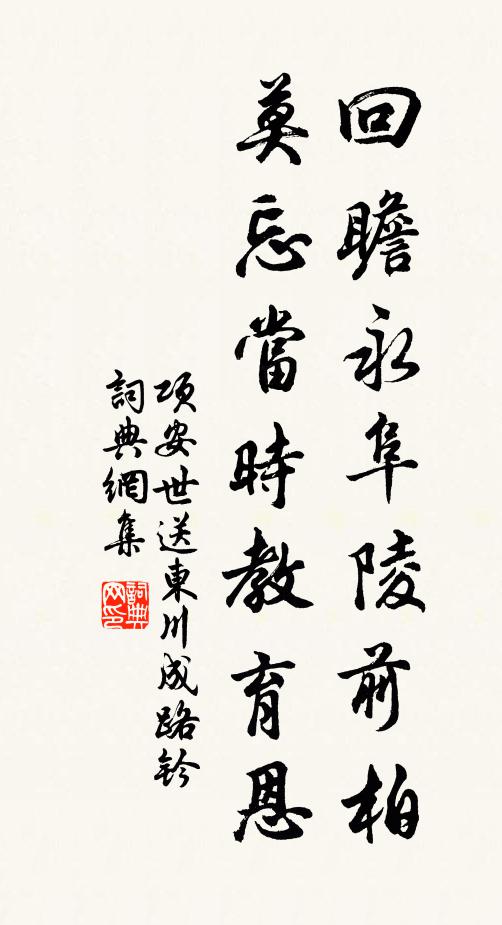 回瞻永阜陵前柏
莫忘當時教育恩
項安世送東川成路鈐
詞典網集
詞典网印